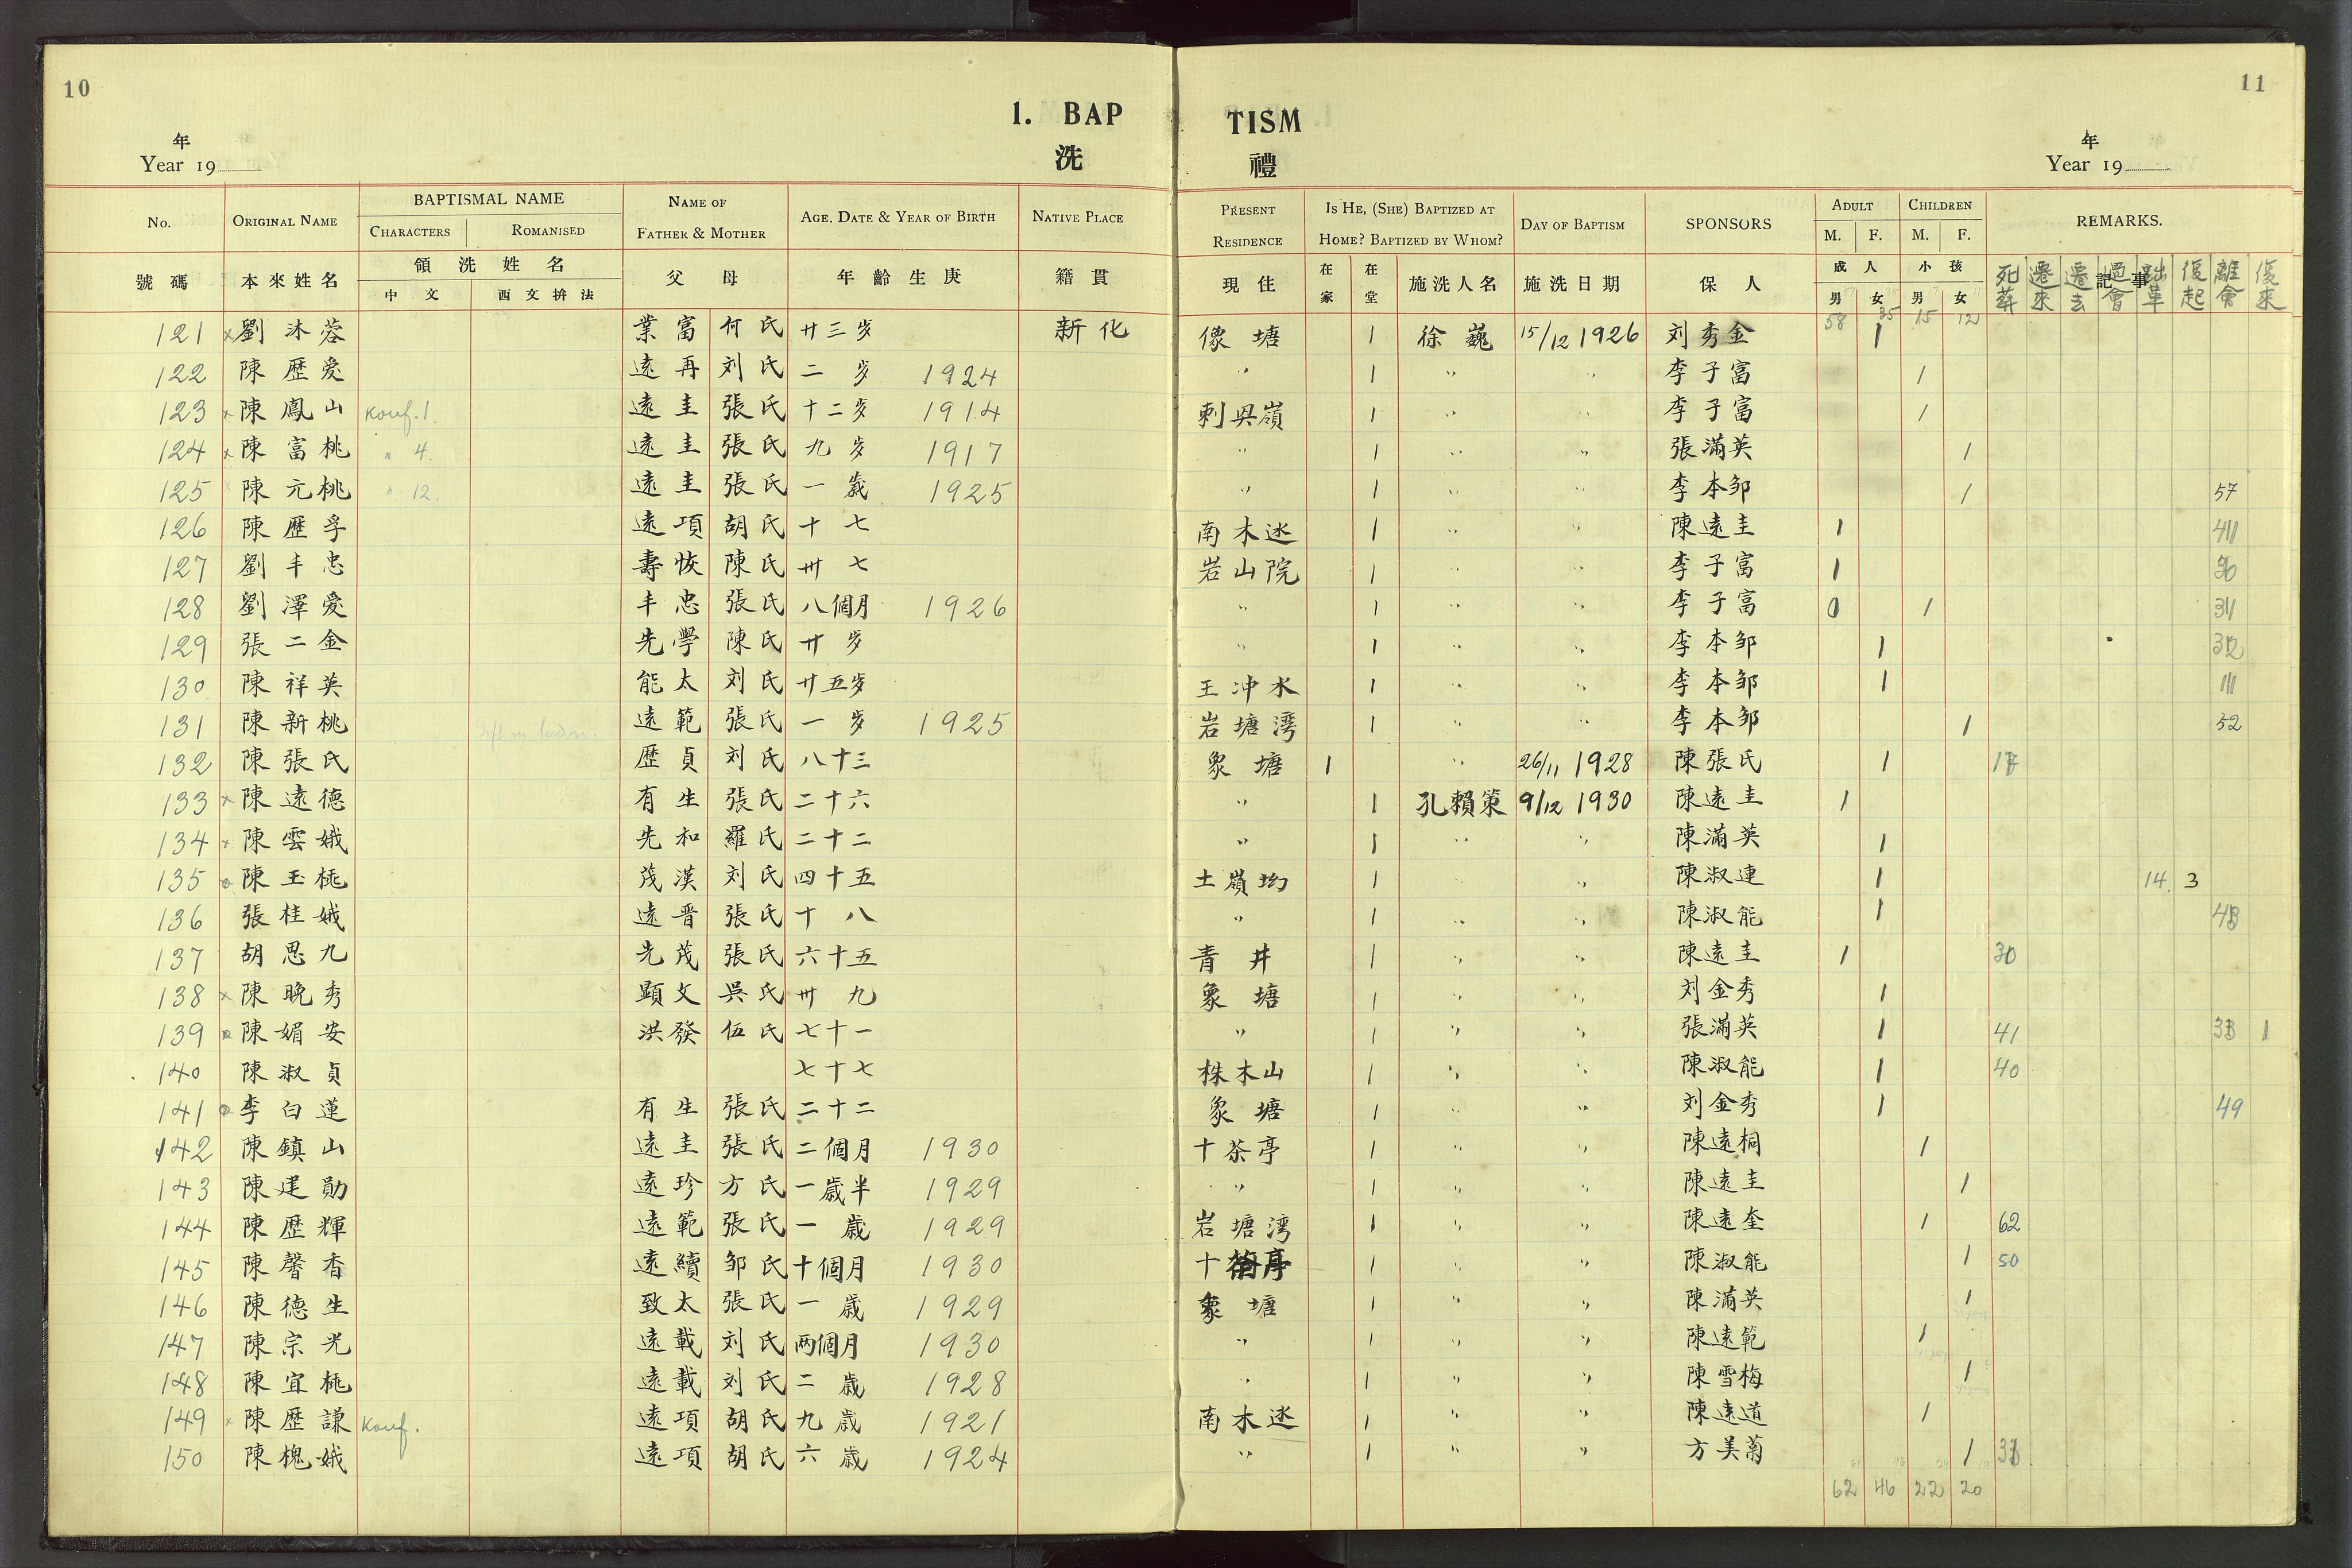 10
11
1. BAP TISM
洗 禮
年 年
Year 19 Year 19
No. ORIGINAL NAME BAPTISMAL NAME NAME OF FATHER & MOTHER AGE. DATE & YEAR OF BIRTH NATIVE PLACE PRESENT RESIDENCE IS HE, (SHE) BAPTIZED AT HOME? BAPTIZED BY WHOM? DAY OF BAPTISM SPONSORS ADULT CHILDREN REMARKS.
CHARACTERS ROMANISED M. F. M. F.
號碼 本來姓名 領洗姓名 父母 年齡生庚 籍貫 現住 在家 在堂 施洗人名 施洗日期 保人 成人 小孩 記事
中文 西文拚法 男 女 男 女 死葬 遷來 遷去 過會 黜革 復起 離會 復來
58 35 15 12
121 x 劉沐蓉 業富 何氏 廿三岁 新化 像塘 1 徐巍 15/12 1926 刘秀金 1
122 陳歷爱 遠再 刘氏 二岁 1924 〃 1 〃 〃 李子富 1
123 x 陳鳳山 Konf. 1. 遠圭 張氏 十二岁 1914 刺吳嶺 1 〃 〃 李子富 1
124 x 陳富桃 〃 4. 遠圭 張氏 九岁 1917 〃 1 〃 〃 張滿英 1
125 x 陳元桃 〃 12. 遠圭 張氏 一歲 1925 〃 1 〃 〃 李本邹 1 57
126 陳歷孚 遠項 胡氏 十七 南木迯 1 〃 〃 陳遠圭 1
127 劉丰忠 壽恢 陳氏 卅七 岩山院 1 〃 〃 李子富 1
128 劉澤爱 丰忠 張氏 八個月 1926 〃 1 〃 〃 李子富 1
129 張二金 先學 陳氏 廿岁 〃 1 〃 〃 李本邹 1
130 陳祥英 能太 刘氏 廿五岁 王冲水 1 〃 〃 李本邹 1
131 陳新桃 遠範 張氏 一岁 1925 岩塘湾 1 〃 〃 李本邹 1 52
132 陳張氏 歷貞 刘氏 八十三 象塘 1 〃 26/11 1928 陳張氏 1
133 x 陳遠德 有生 張氏 二十六 〃 1 孔賴策 9/12 1930 陳遠圭 1
134 x 陳雲娥 先和 羅氏 二十二 〃 1 〃 〃 陳滿英 1
135 陳玉桃 茂漢 刘氏 四十五 土嶺坳 1 〃 陳淑連 1 14. 3
136 張桂娥 遠晋 張氏 十八 〃 1 〃 〃 陳淑能 1
137 胡思九 先茂 張氏 六十五 青井 1 〃 〃 陳遠圭 1 30
138 x 陳晚秀 顕文 吳氏 卅九 象塘 1 〃 〃 刘金秀 1
139 陳媚安 洪發 伍氏 七十一 〃 1 〃 〃 張滿英 1 41 1
140 陳淑貞 七十七 株木山 1 〃 〃 陳淑能 1 40
141 李白蓮 有生 張氏 二十二 象塘 1 〃 〃 刘金秀 1 49
142 陳鎮山 遠圭 張氏 二個月 1930 十茶亭 1 〃 〃 陳遠桐 1
143 陳建勛 遠珍 方氏 一歲半 1929 〃 1 〃 〃 陳遠圭 1
144 陳歷輝 遠範 張氏 一歲 1929 岩塘湾 1 〃 〃 陳遠奎 1 62
145 陳馨香 遠續 邹氏 十個月 1930 十茶亭 1 〃 〃 陳淑能 1 50
146 陳德生 致太 張氏 一歲 1929 象塘 1 〃 〃 陳滿英 1
147 陳宗光 遠載 刘氏 两個月 1930 〃 1 〃 〃 陳遠範 1
148 陳宜桃 遠載 刘氏 二歲 1928 〃 1 〃 〃 陳雪梅 1
149 x 陳歷謙 Konf. 遠項 胡氏 九歲 1921 南木迯 1 〃 〃 陳遠道 1
150 陳槐娥 遠項 胡氏 六歲 1924 〃 1 〃 〃 方美菊 1
62 46 22 20